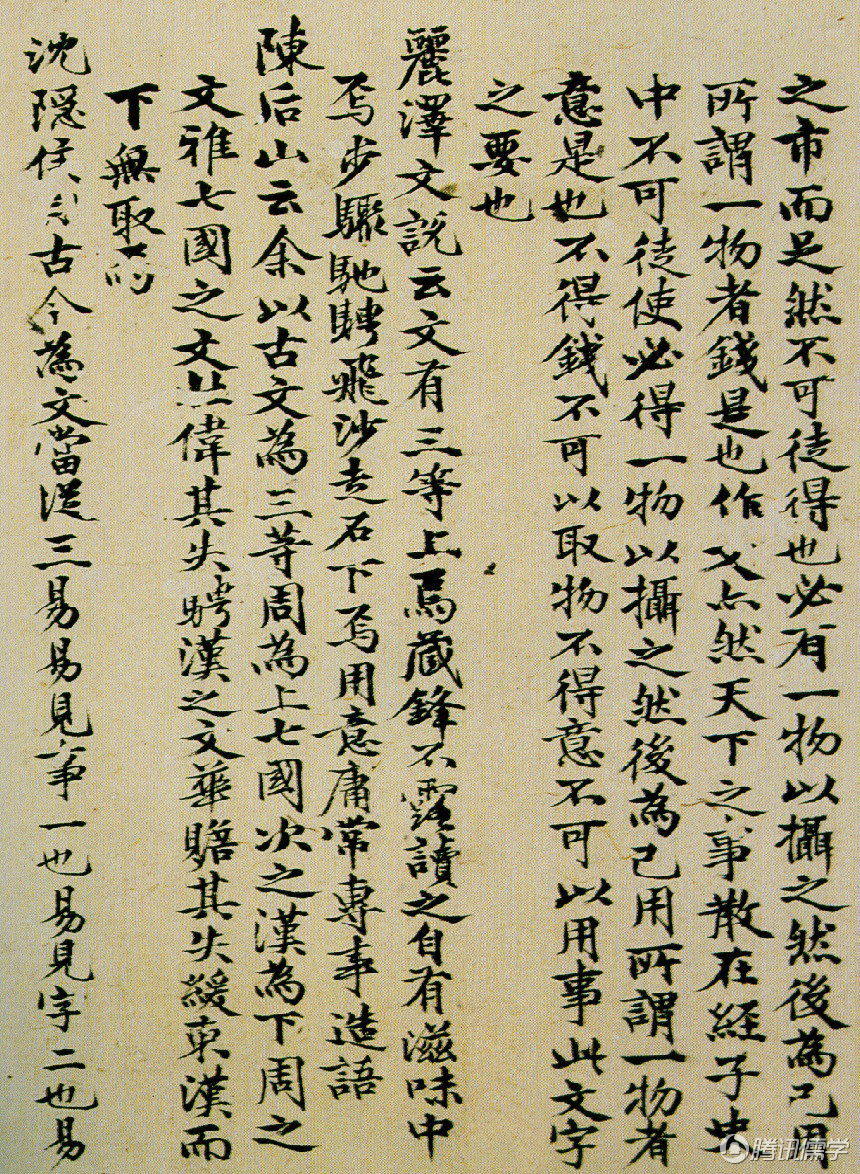 之市而足然不可徒得也必有一物以攝之然後為己用
所謂一物者錢是也作文亦然天下之事散在經子史
中不可徒使必得一物以攝之然後為己用所謂一物者
意是也不得錢不可以取物不得意不可以用事此文字
之要也
麗澤文說云文有三等上焉藏鋒不露讀之自有滋味中
焉步驟馳騁飛沙走石下焉用意庸常專事造語
陳后山云余以古文為三等周為上七國次之漢為下周之
文雅七國之文壯偉其失騁漢之文華贍其失緩東漢而
下無取
沈隱侯古今為文當從三易易見事一也易見字二也易
腾讯儒学